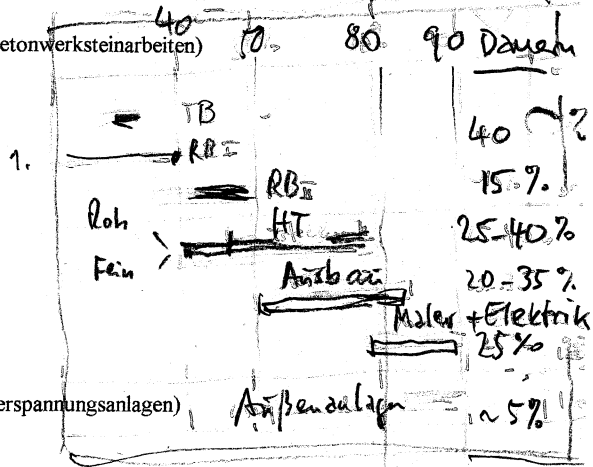 40 50 80 90 Dauern
etonwerksteinarbeiten)
TB
40 %
1. RB I
RB II 15 %
Roh HT 25-40 %
Fein
Ausbau 20-35 %
Maler + Elektrik
25%
erspannungsanlagen) Außenanlagen ~5%